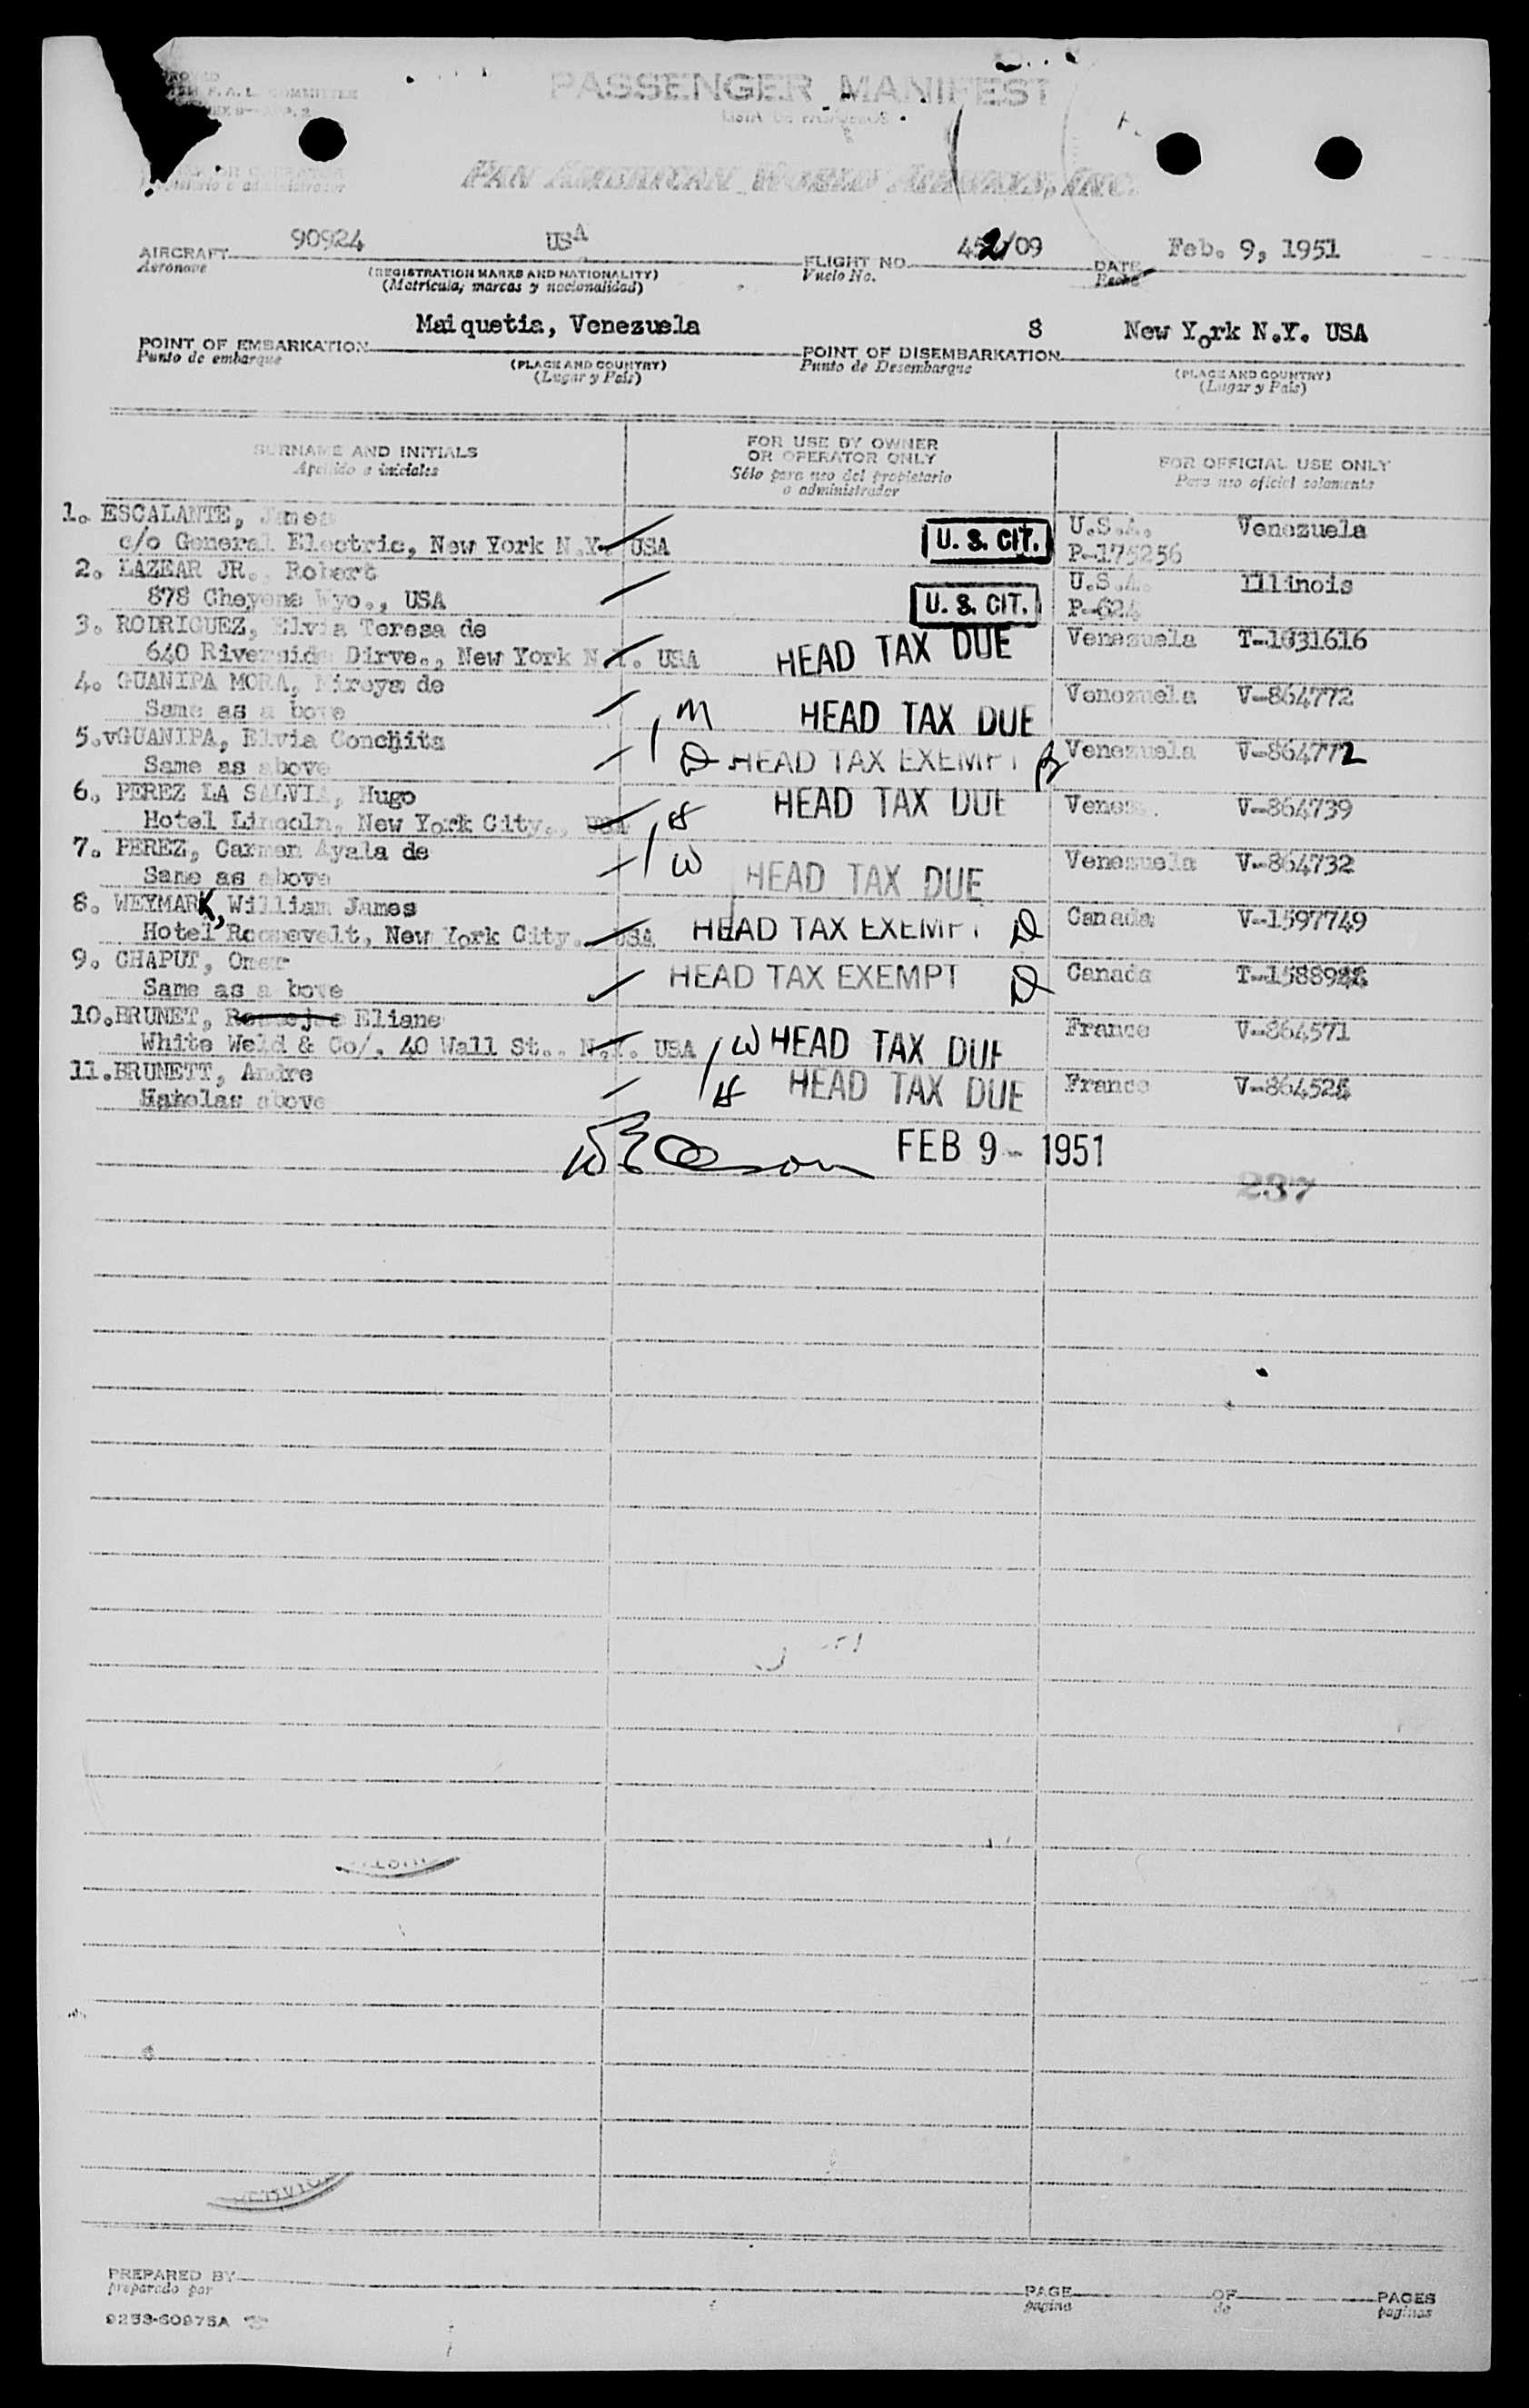 PASSENGER MANIFEST
PAN AMERICAN WORLD AIRWAYS, INC.
AIRCRAFT 90924 USA FLIGHT NO. 452/09 DATE Feb. 9, 1951
Aeronave (REGISTRATION MARKS AND NATIONALITY) Vuelo No. Fecha
(Matrícula, marcas y nacionalidad)
POINT OF EMBARKATION Maiquetia, Venezuela POINT OF DISEMBARKATION 8 New York N.Y. USA
Punto de embarque (PLACE AND COUNTRY) Punto de Desembarque (PLACE AND COUNTRY)
(Lugar y País) (Lugar y País)
SURNAME AND INITIALS FOR USE BY OWNER OR OPERATOR ONLY FOR OFFICIAL USE ONLY
Apellido e iniciales Sólo para uso del propietario o administrador Para uso oficial solamente
1. ESCALANTE, James U.S.A. Venezuela
c/o General Electric, New York N.Y. USA U. S. CIT. P-175256
2. LAZEAR JR., Robert U.S.A. Illinois
878 Cheyene Wyo., USA U. S. CIT. P-624
3. RODRIGUEZ, Elvia Teresa de Venezuela T-1031616
640 Riverside Dirve., New York N.Y. USA HEAD TAX DUE
4. GUANIPA MORA, Mireya de Venezuela V-864772
Same as a bove M HEAD TAX DUE
5.vGUANIPA, Elvia Conchita Venezuela V-864772
Same as above D HEAD TAX EXEMPT
6. PEREZ LA SALVIA, Hugo HEAD TAX DUE Venez. V-864739
Hotel Lincoln, New York City., USA H
7. PEREZ, Carmen Ayala de Venezuela V-864732
Same as above W HEAD TAX DUE
8. WEYMARK, William James Canada V-1597749
Hotel Roosevelt, New York City., USA HEAD TAX EXEMPT D
9. CHAPUT, Omer Canada
Same as a bove HEAD TAX EXEMPT D
10.BRUNET, Eliane France V-864571
White Weld & Co/. 40 Wall St.. N.Y. USA W HEAD TAX DUE
11.BRUNETT, Andre France
above H HEAD TAX DUE
FEB 9 - 1951
237
PREPARED BY PAGE OF PAGES
preparado por pagina de paginas
9253-60975A